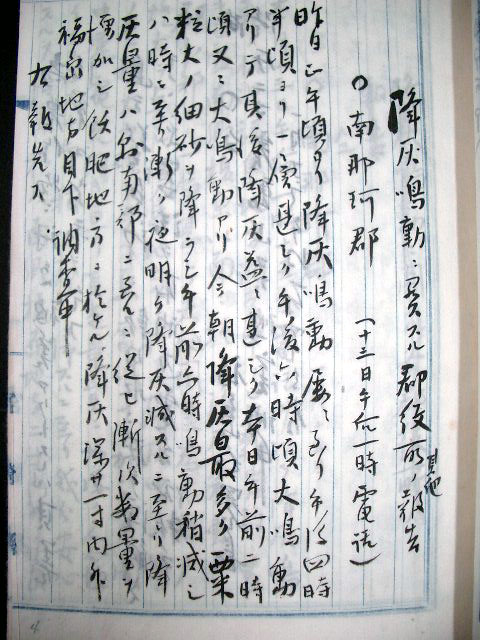 降灰鳴動ニ関スル郡役所其他ノ報告
○南那珂郡 (十三日午前一時電話)
昨日正午頃ヨリ降灰鳴動屡々ニ至リ午后四時
半頃ヨリ一層甚シク午後六時頃大鳴動
アリテ其後降灰益々甚シク本日午前二時
頃又々大鳴動アリ今朝降灰最多ク粟
粒大ノ細砂ヲ降ラシ午前六時鳴動稍減シ
八時ニ至漸ク夜明ケ降灰減スルニ至リ降
灰量ハ南部ニ至ニ従ヒ漸次数量ヲ
増加シ飫肥地方ニ於ケル降灰深サ一寸内外
福島地方目下調査中
右報告ス
4